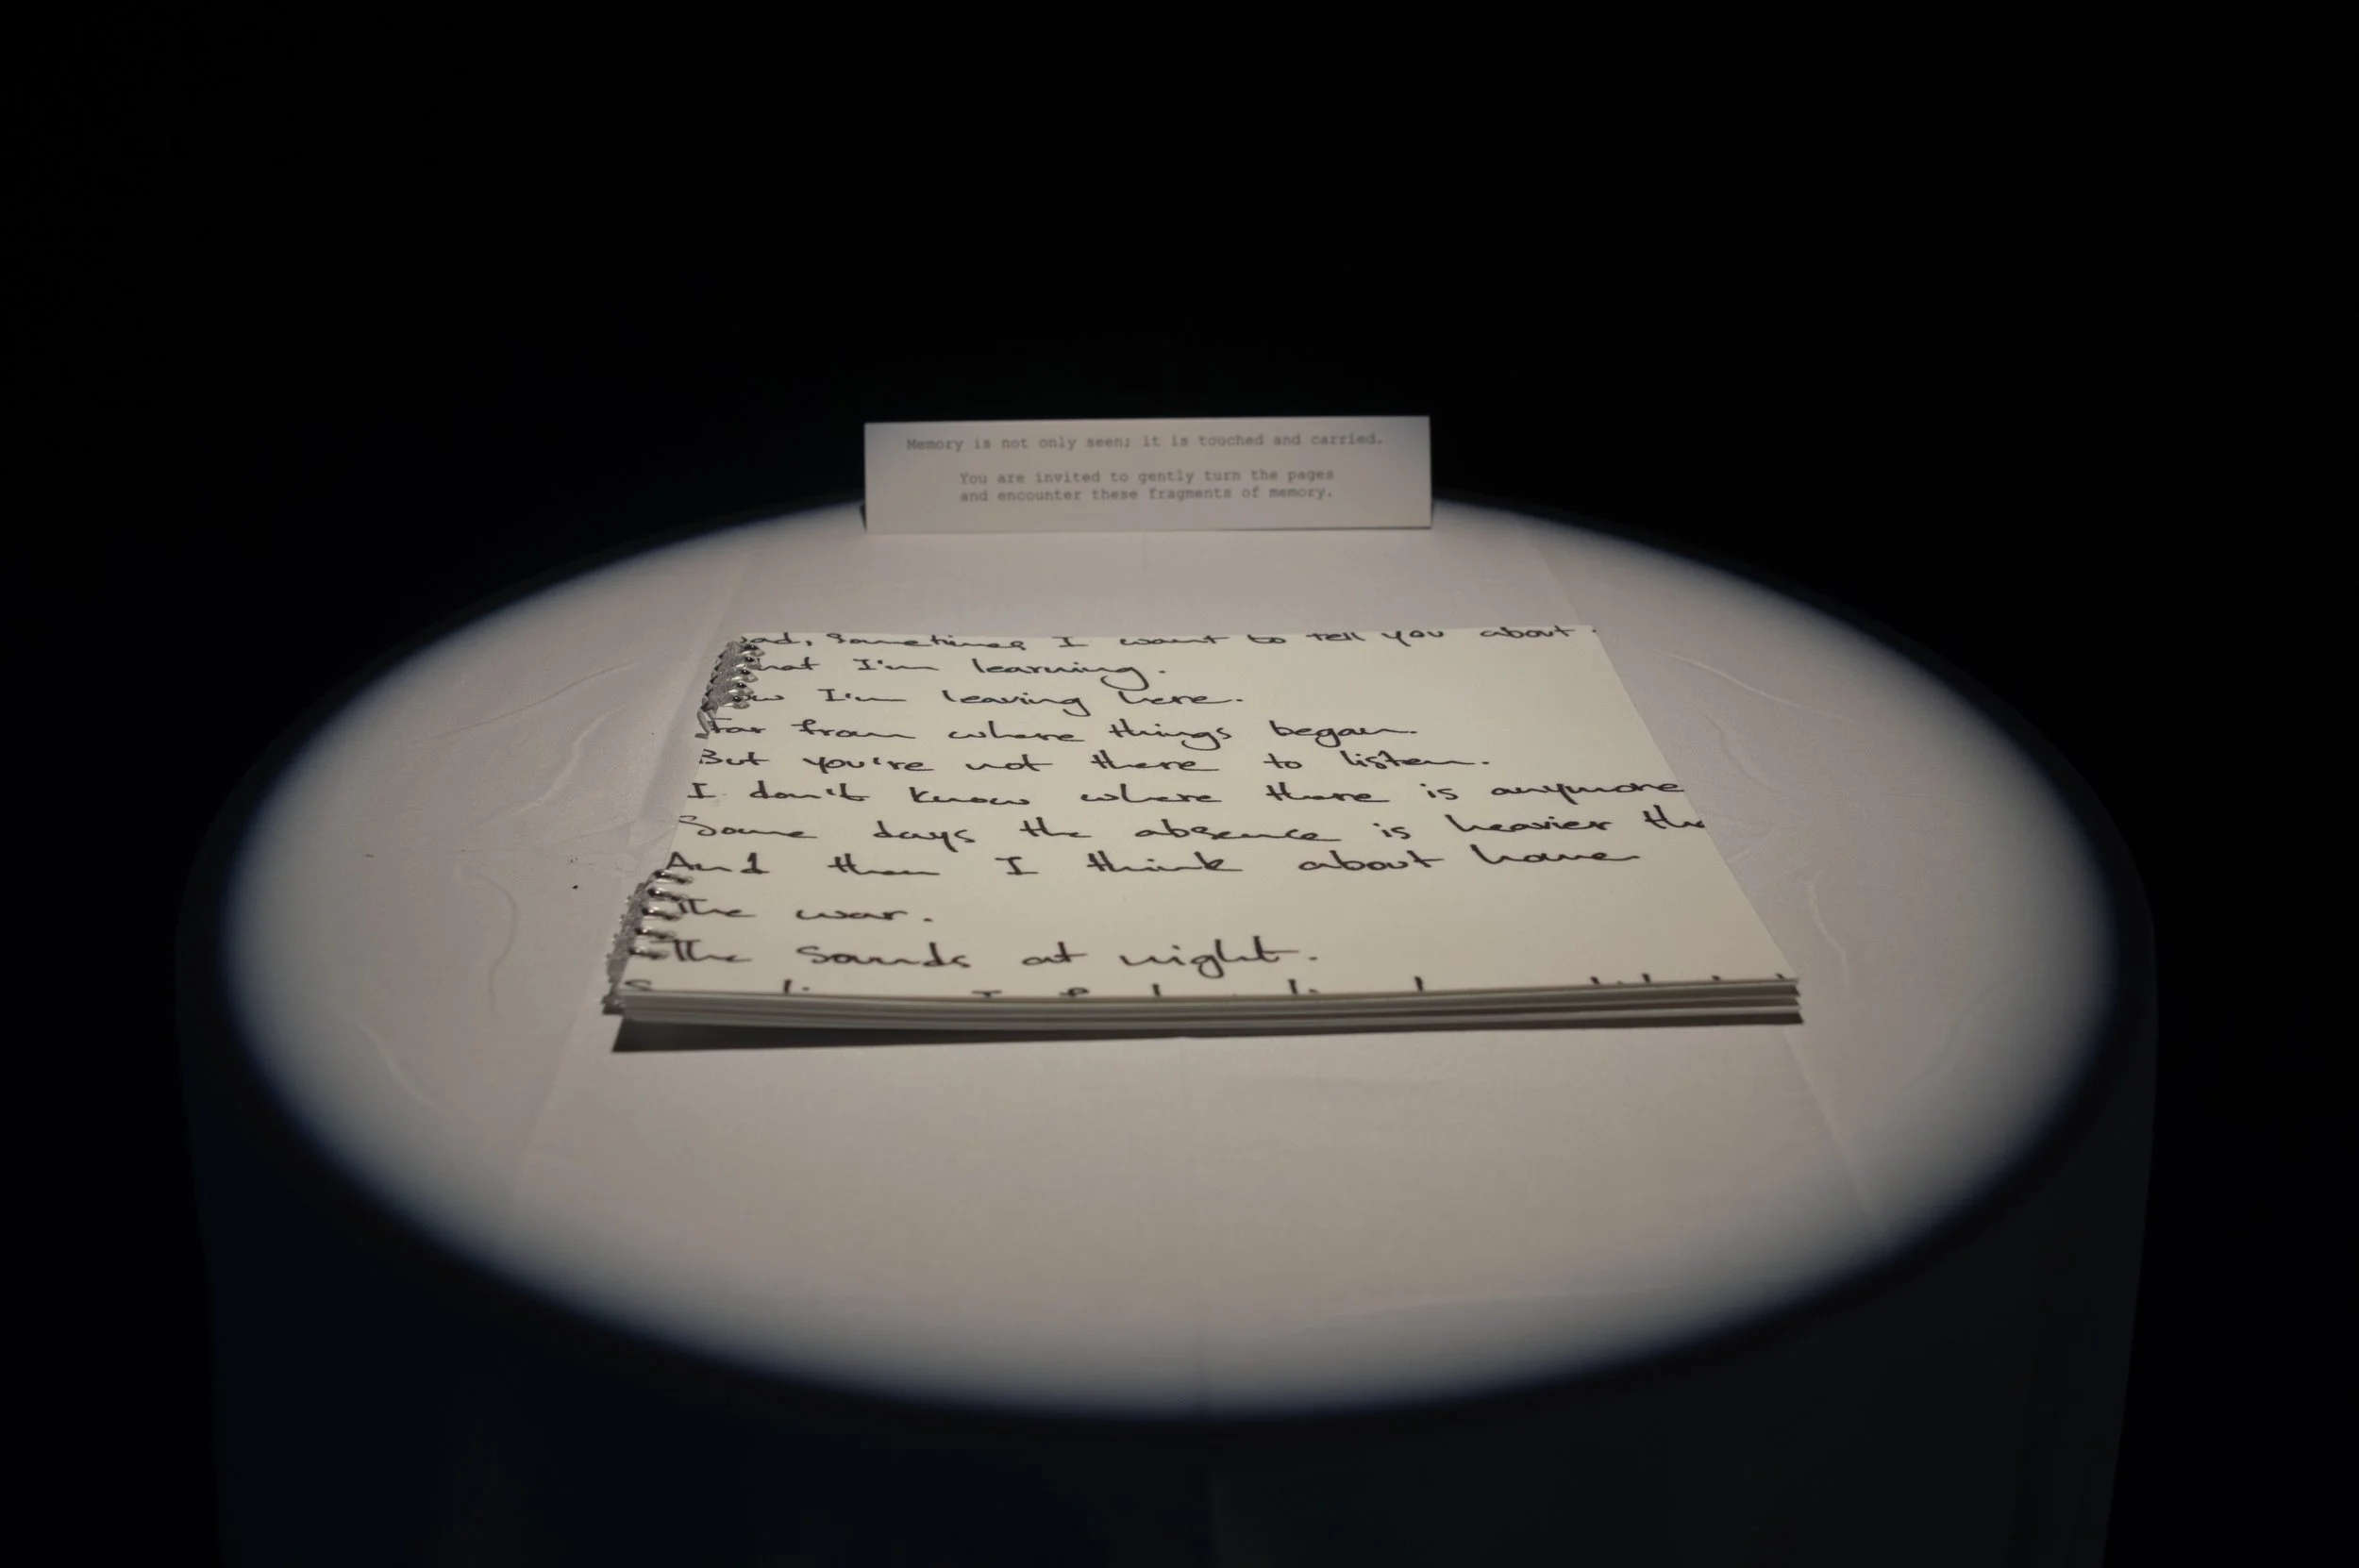 Memory is not only seen; it is touched and carried.
You are invited to gently turn the pages
and encounter these fragments of memory.
Sometimes I want to tell you about
I'm learning.
I'm leaving here.
Far from where things began.
But you're not there to listen.
I don't know where there is anymore
Some days the absence is heavier
And then I think about home
The war.
The sounds at night.